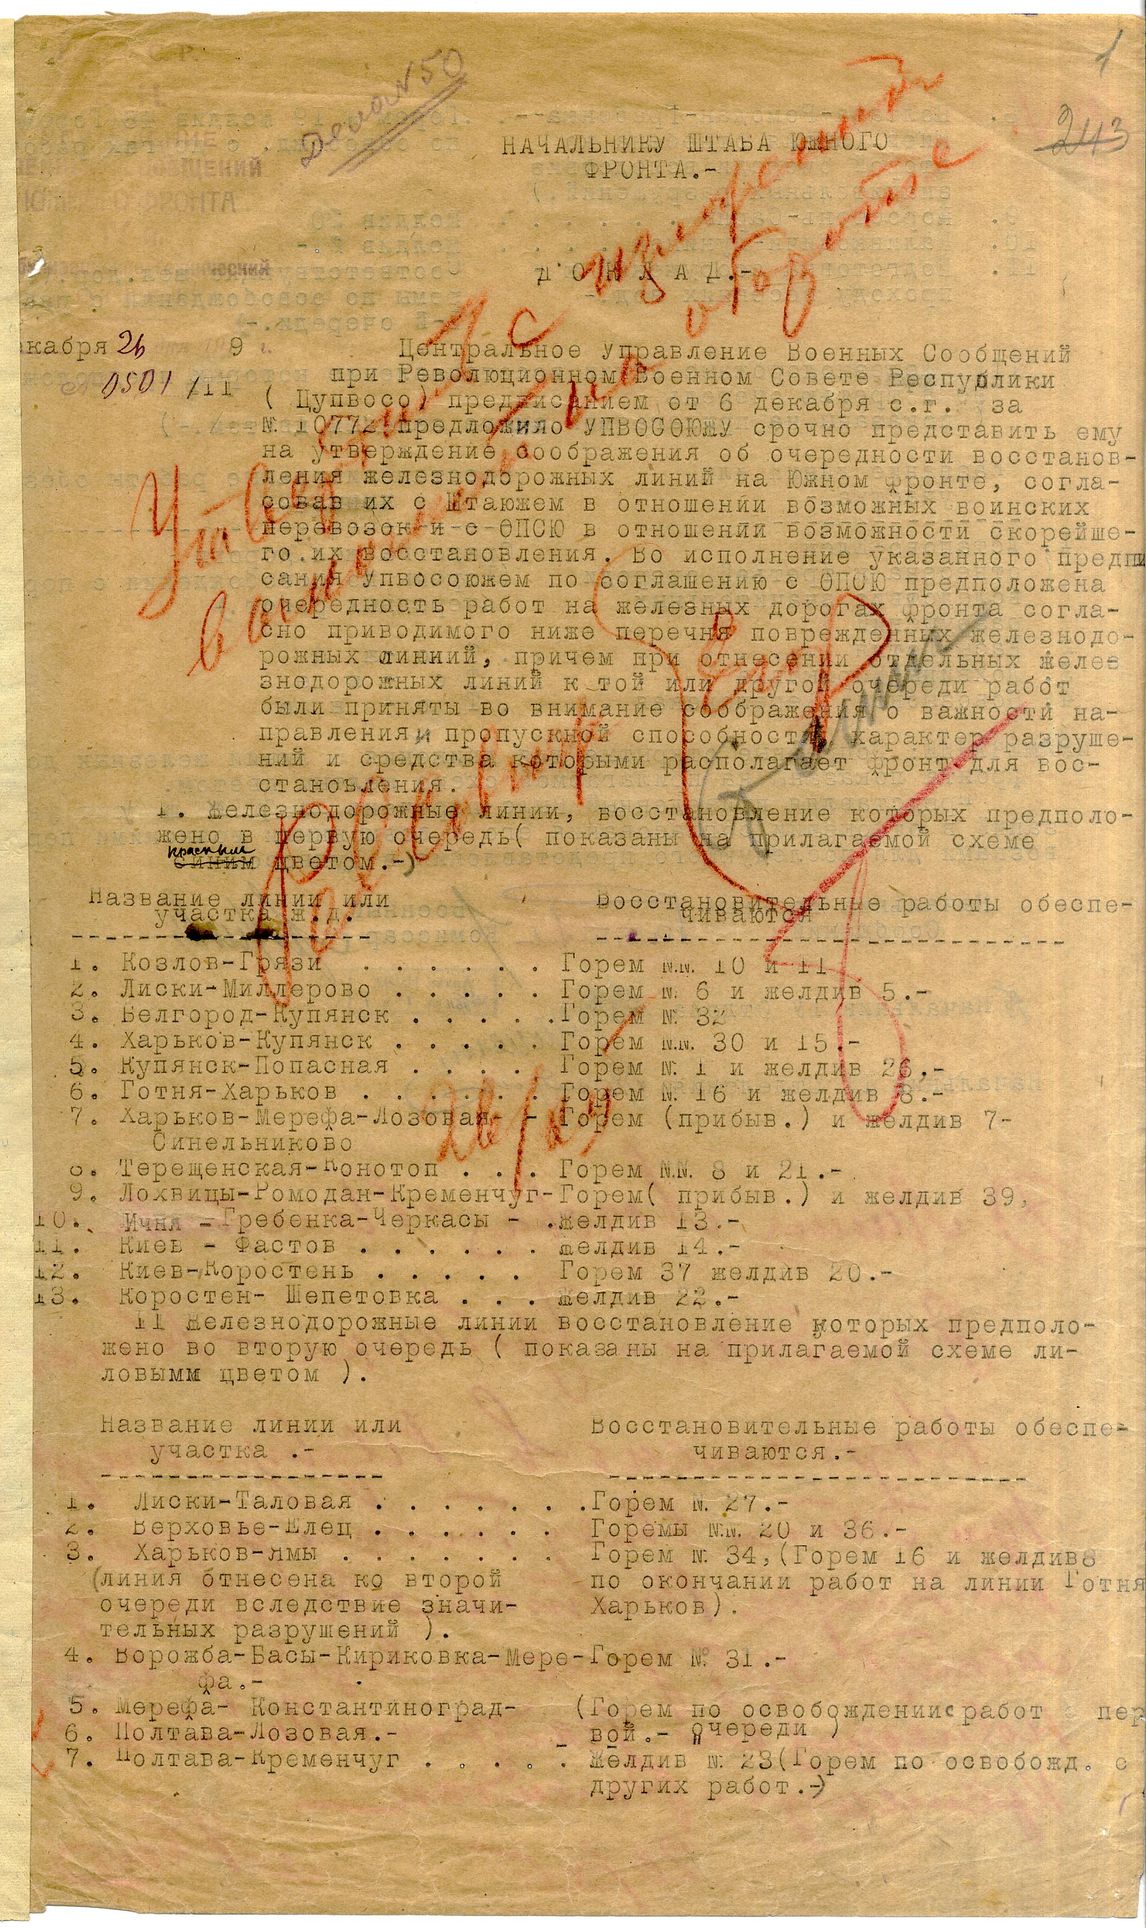 1
243
Дела № 50
НАЧАЛЬНИКУ ШТАБА ЮЖНОГО
ФРОНТА.-
ДОКЛАД.-
Утвердить с
на обороте
Реввоенсовет
26/XII
екабря 26 9 г.
№ 0501/11
Центральное Управление Военных Сообщений
при Революционном Военном Совете Республики
( Цупвосо) предписанием от 6 декабря с.г. за
№ 10772 предложило УПВОСОЮЖУ срочно представить ему
на утверждение соображения об очередности восстанов-
ления железнодорожных линий на Южном фронте, согла-
совав их с Штаюжем в отношении возможных воинских
перевозок и с ОПСЮ в отношении возможности скорейше-
го их восстановления. Во исполнение указанного предпи
сания Упвосоюжем по соглашению с ОПСЮ предположена
очередность работ на железных дорогах фронта согла-
сно приводимого ниже перечня поврежденных железнодо-
рожных линий, причем при отнесении отдельных желез
знодорожных линий к той или другой очереди работ
были приняты во внимание соображения о важности на-
правления, пропускной способности, характер разруше-
ний и средства которыми располагает фронт для вос-
становления.
1. Железнодорожные линии, восстановление которых предполо-
жено в первую очередь( показаны на прилагаемой схеме
красным
синим цветом.-)
Название линии или Восстановительные работы обеспе-
участка ж.д. чиваются
1. Козлов-Грязи . . . . . . Горем №№ 10 и 11
2. Лиски-Миллерово . . . . . Горем № 6 и желдив 5.-
3. Белгород-Купянск . . . . . Горем № 32
4. Харьков-Купянск . . . . . Горем №№ 30 и 15.-
5. Купянск-Попасная . . . . Горем № 1 и желдив 26.-
6. Готня-Харьков . . . . . . Горем № 16 и желдив 8.-
7. Харьков-Мерефа-Лозовая - Горем (прибыв.) и желдив 7-
Синельниково
8. Терещенская-Конотоп . . . Горем №№ 8 и 21.-
9. Лохвицы-Ромодан-Кременчуг-Горем( прибыв.) и желдив 39,
10. Ичня - Гребенка-Черкасы - .желдив 13.-
11. Киев - Фастов . . . . . . желдив 14.-
12. Киев-Коростень . . . . . Горем 37 желдив 20.-
13. Коростен- Шепетовка . . . желдив 22.-
11 Железнодорожные линии восстановление которых предполо-
жено во вторую очередь ( показаны на прилагаемой схеме ли-
ловымм цветом ).
Название линии или Восстановительные работы обеспе-
участка .- чиваются.-
1. Лиски-Таловая . . . . . . .Горем № 27.-
2. Верховье-Елец . . . . . . Горемы №№ 20 и 36.-
3. Харьков-Ямы . . . . . . . Горем № 34,(Горем 16 и желдив8
(линия отнесена ко второй по окончании работ на линии Готня
очереди вследствие значи- Харьков).
тельных разрушений ).
4. Ворожба-Басы-Кириковка-Мере-Горем № 31.-
фа.-
5. Мерефа- Константиноград- (Горем по освобождении с работ с пер
6. Полтава-Лозовая.- вой.- очереди )
7. Полтава-Кременчуг . . . . . Желдив № 23(Горем по освобожд. с
других работ.-)